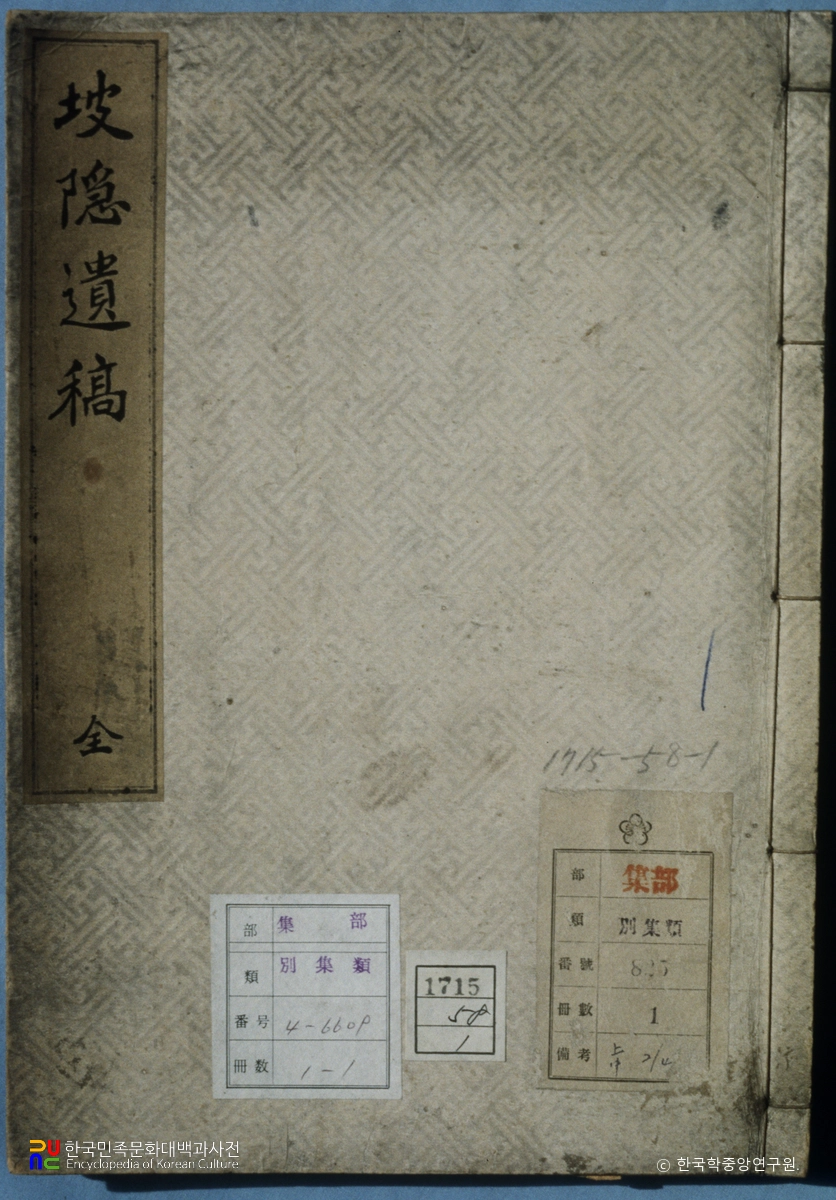 坡隐遺稿
全
1715-58-1
部 集部
類 別集類
番號
冊數 1
備考
部 集 部
類 別 集 類
番号 4-6609
冊数 1-1
1715
58
1
한국민족문화대백과사전
Encyclopedia of Korean Culture
© 한국학중앙연구원.